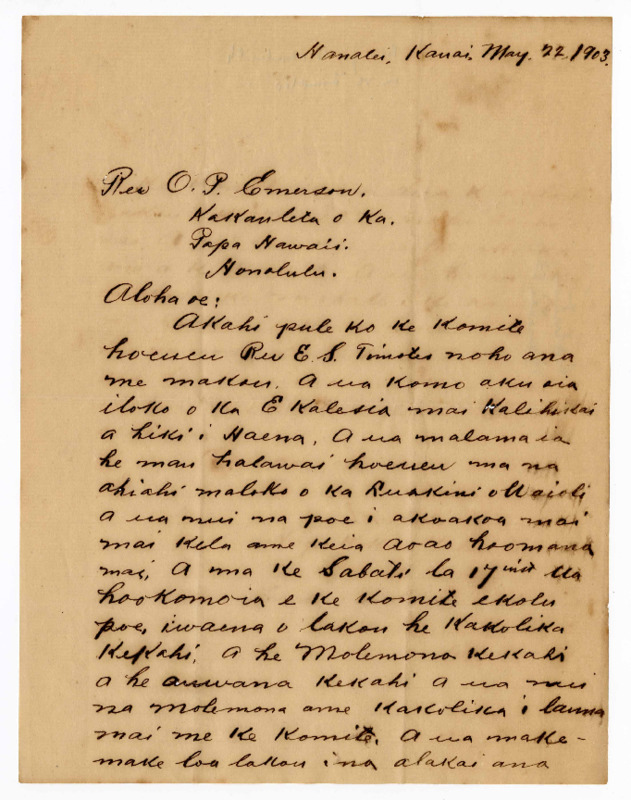 Hanalei, Kauai. May. 22. 1903.
Rev O. P. Emerson.
Kakauleta o Ka.
Papa Hawaii.
Honolulu.
Aloha oe:
Akahi pule ko ke Komite
hoeueu Rev E. S. Timoteo noho ana
me makou. A ua komo aku oia
iloko o ka Ekalesia mai Kalihikai
a hiki i Haena. A ua malamaia
he mau halawai hoeueu ma na
ahiahi maloko o ka Luakini o Waioli
a ua nui na poe i akoakoa mai
mai kela ame keia aoao hoomana
mai. A ma ke Sabati la 17 inst Ua
hookomoia e ke Komite ekolu
poe, iwaena o lakou he Kakolika
Kekahi, a he Molemona kekahi
a he auwana kekahi A ua nui
na molemona ame Kakolika i launa
mai me ke Komite. A ua make-
make loa lakou ina alakai ana